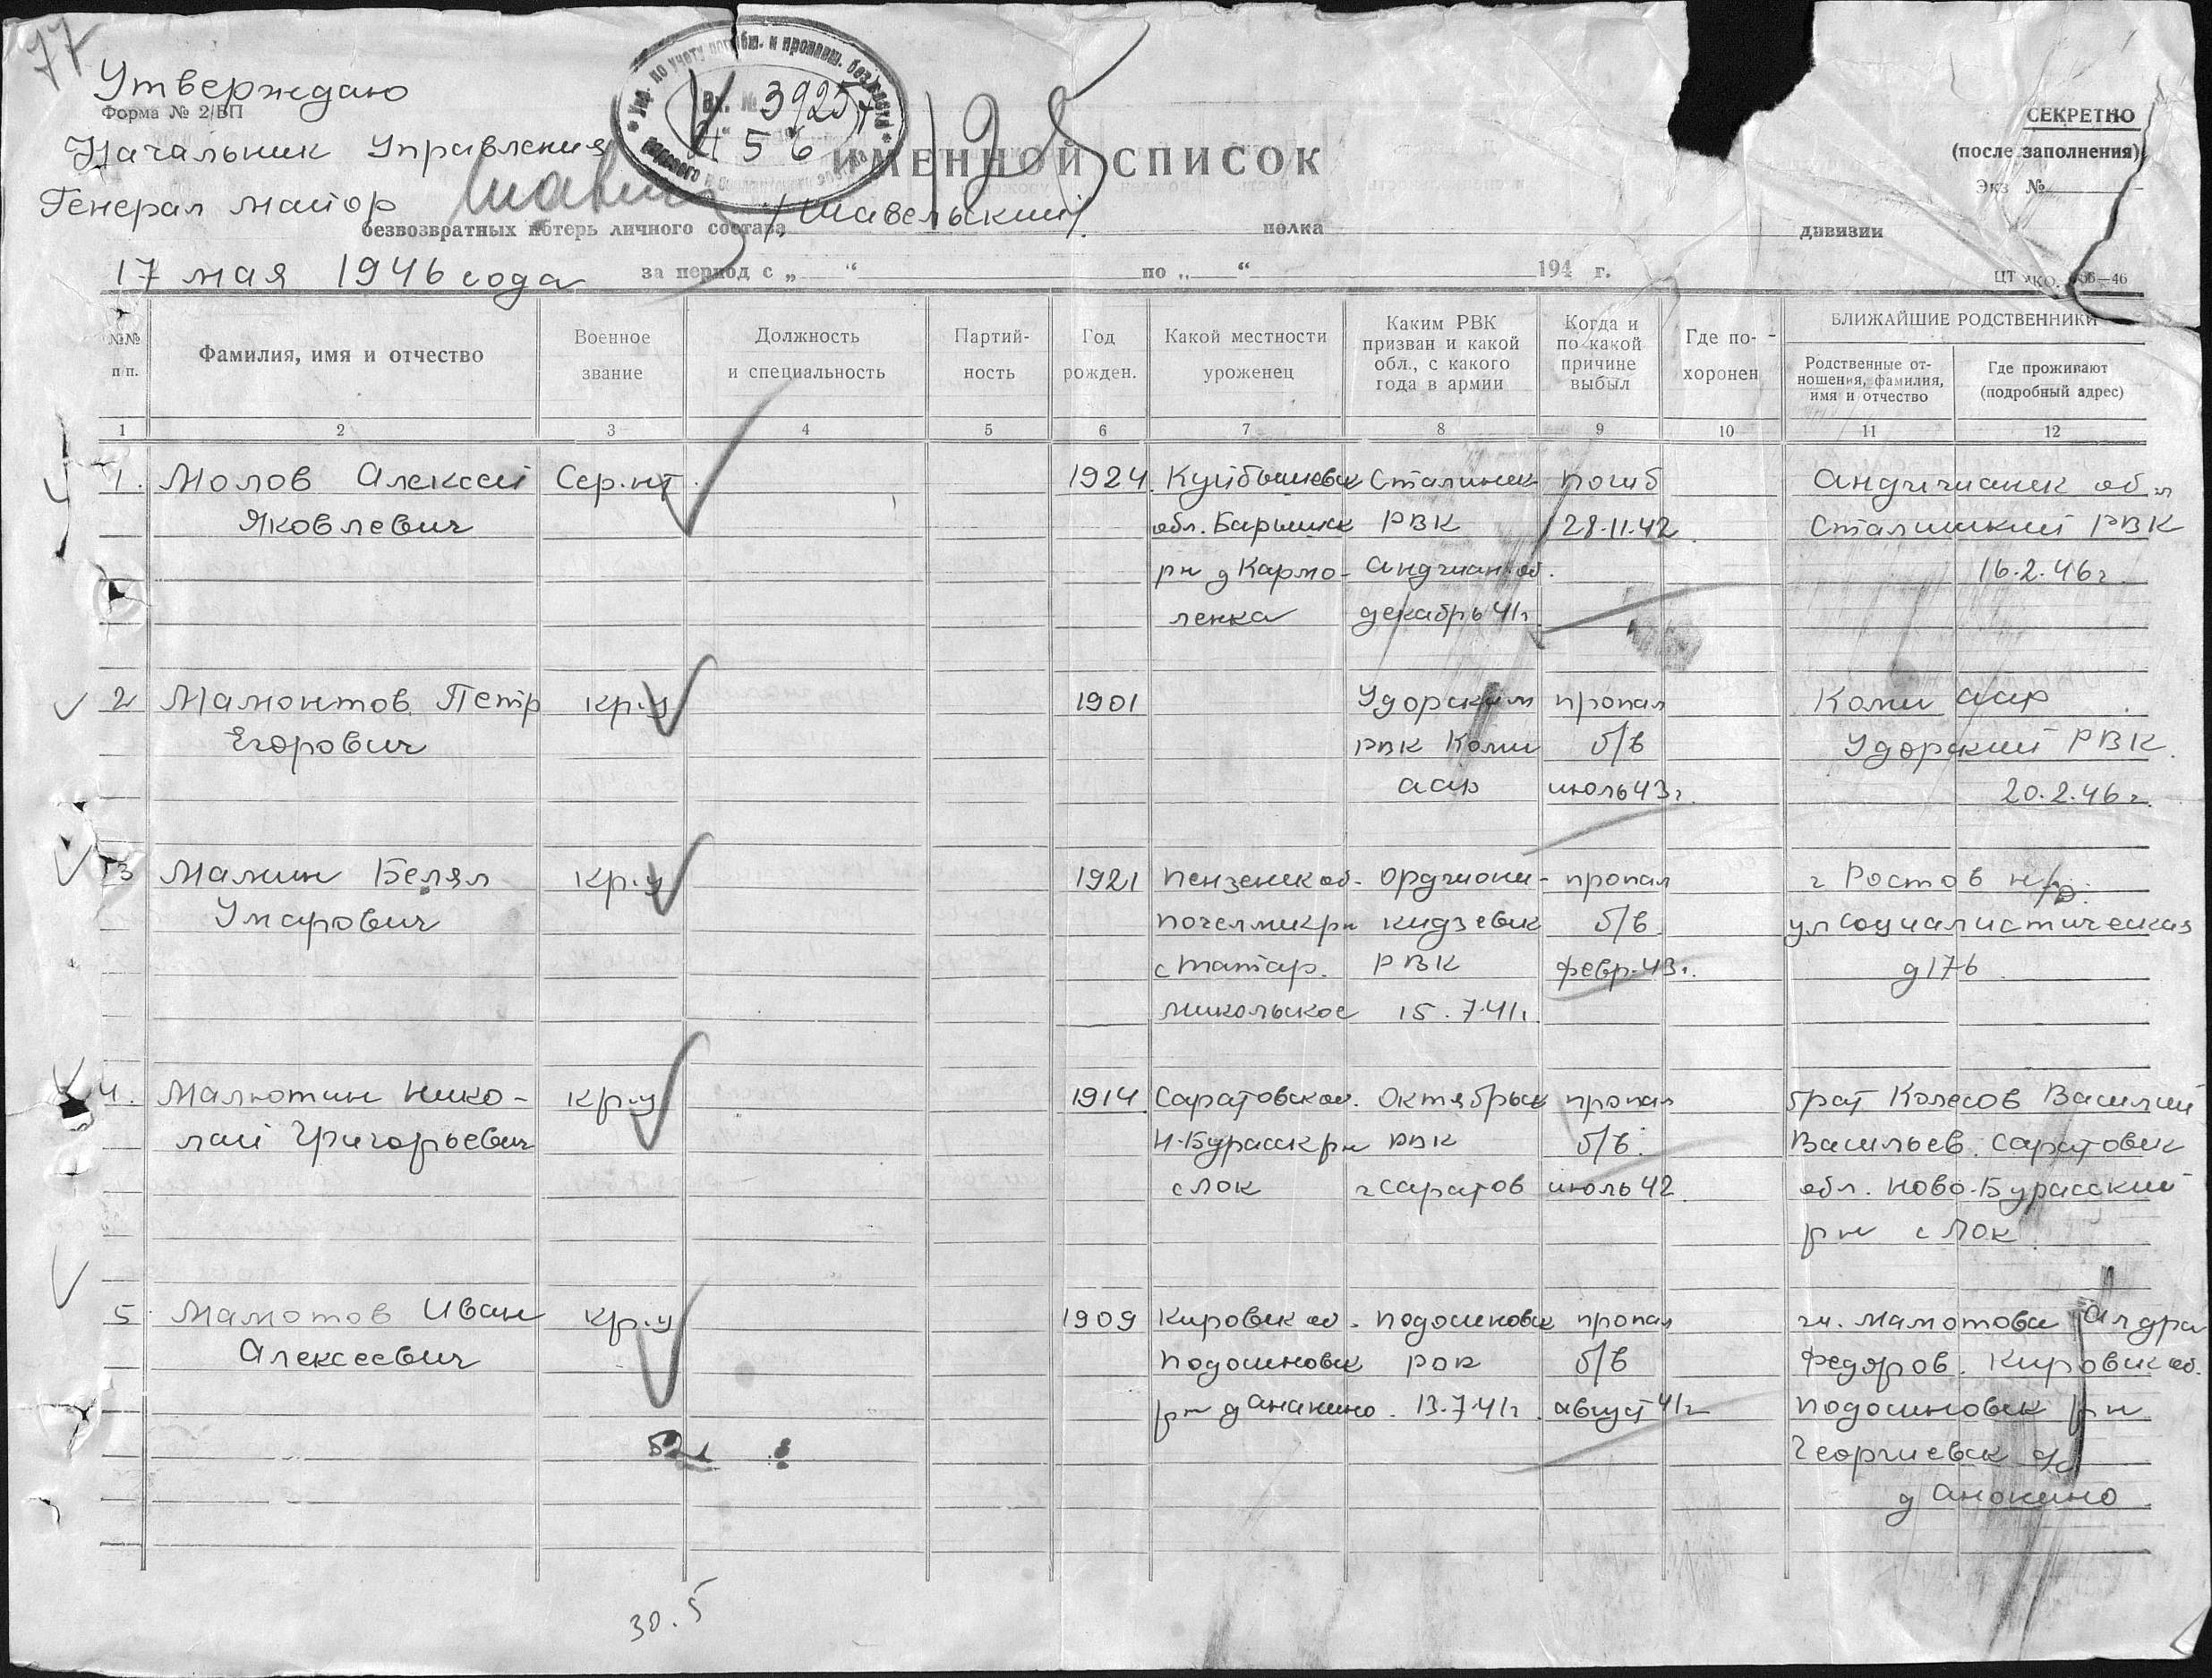 77
Утверждаю
Форма № 2/БП
Начальник Управления
Генерал майор /Шавельский/
17 мая 1946 года
Упр. по учету погибш. и пропавш. без вести
Вх. № 39257
5 6
125
ИМЕННОЙ СПИСОК
безвозвратных потерь личного состава полка дивизии
за период с „ “ по „ “ 194 г.
СЕКРЕТНО
(после заполнения)
Экз №
№№ п/п.
Фамилия, имя и отчество
Военное звание
Должность и специальность
Партий-ность
Год рожден.
Какой местности уроженец
Каким РВК призван и какой обл., с какого года в армии
Когда и по какой причине выбыл
Где по-хоронен
БЛИЖАЙШИЕ РОДСТВЕННИКИ
Родственные от-ношения, фамилия, имя и отчество
Где проживают (подробный адрес)
1 2 3 4 5 6 7 8 9 10 11 12
1. Молов Алексей Сер.нт 1924 Куйбышевск Сталинск погиб Андижанск обл
Яковлевич обл. Барышск РВК 28.11.42 Сталинский РВК
рн д Кармо- Андижан.об. 16.2.46г
ленка декабрь 41г
2 Мамонтов Петр кр-ц 1901 Удорским пропал Коми асср
Егорович РВК Коми б/в Удорский РВК
асср июль 43г. 20.2.46г.
3 Малин Белял кр-ц 1921 Пензенск об. Орджони- пропал г Ростов н/Д.
Умарович Почелмик рн кидзевск б/в ул Социалистическая
с Татар. РВК февр. 43г. д 176
Никольское 15.7.41г
4. Малютин Нико- кр-ц 1914 Саратовск об. Октябрьск пропал брат Колесов Василий
лай Григорьевич Н-Бурасск рн РВК б/в. Васильев. Саратовск
с Лок г Саратов июль 42 обл. Ново-Бурасский
рн с Лок
5 Мамотов Иван кр-ц 1909 Кировск об. Подосиновск пропал ж. Мамотова Алдра
Алексеевич Подосиновск РВК б/в Федоров. Кировск об.
рн д Анакино. 13.7.41г. август 41г Подосиновск рн
Георгиевск с/с
д Анокино
30.5